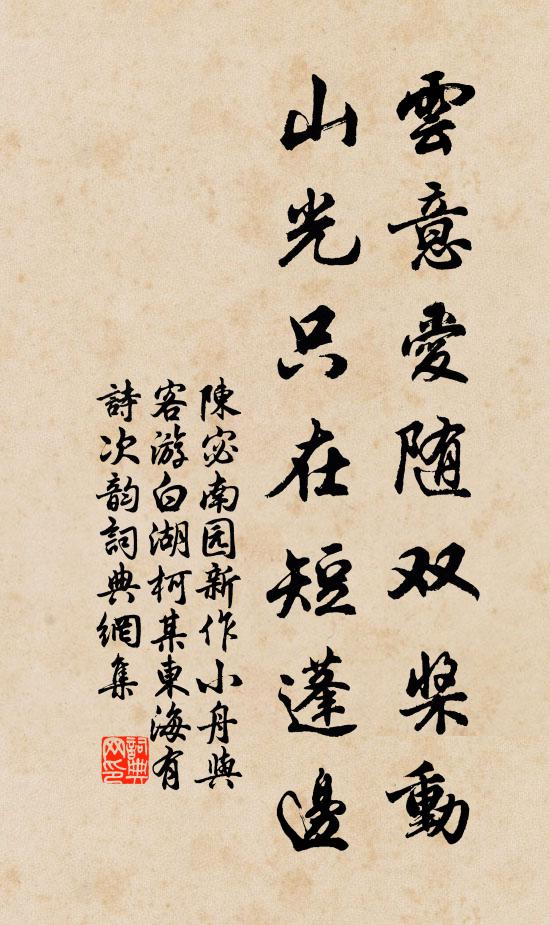 雲意愛随双桨動
山光只在短蓬邊
陳宓南园新作小舟與
客游白湖柯某東海有
詩次韵詞典網集
詞典网印